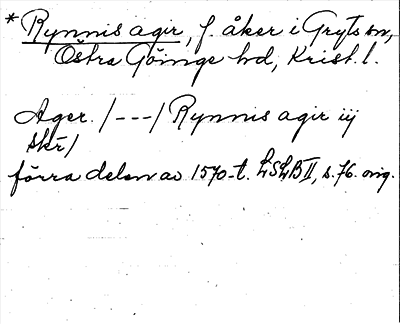 *Rynnis agir, f. åker i Gryts sn,
Östra Göinge hd, Krist. l.
Ager. /---/ Rynnis agir iij
skr̄/
förra delen av 1570-t. LSLB II, s. 76. orig.